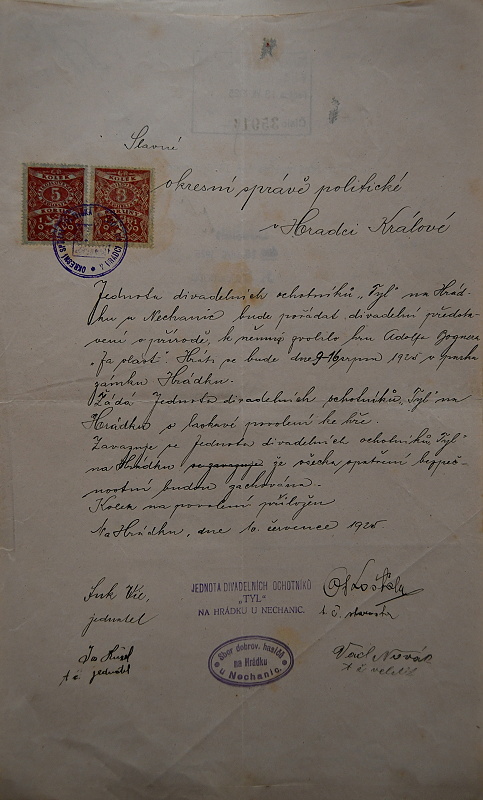 Slavné
okresní správě politické
v Hradci Králové
KOLEK
5
KOLEK
3
KORUNY
Jednota divadelních ochotníků „Tyl" na Hrád-
ku u Nechanic bude pořádat divadelní předsta-
vení v přírodě, k němuž zvolilo hru Adolfa Bognera
„Za vlast". Hráti se bude dne 9-16 srpna 1925 v
zámku Hrádku.
Žádá Jednota divadelních ochotníků „Tyl" na
Hrádku o laskavé povolení ke hře.
Zavazuje se Jednota divadelních ochotníků „Tyl"
na Hrádku se zavazuje že všecka opatření bezpeč-
nostní budou zachována.
Kolek na povolení přiložen
Na Hrádku, dne 10. července 1925
jednatel
JEDNOTA DIVADELNÍCH OCHOTNÍKŮ
„TYL"
NA HRÁDKU U NECHANIC.
t. č. starosta
t č jednatel
Sbor dobrov. hasičů
na Hrádku
u Nechanic.
Václ Novák
t č velitel